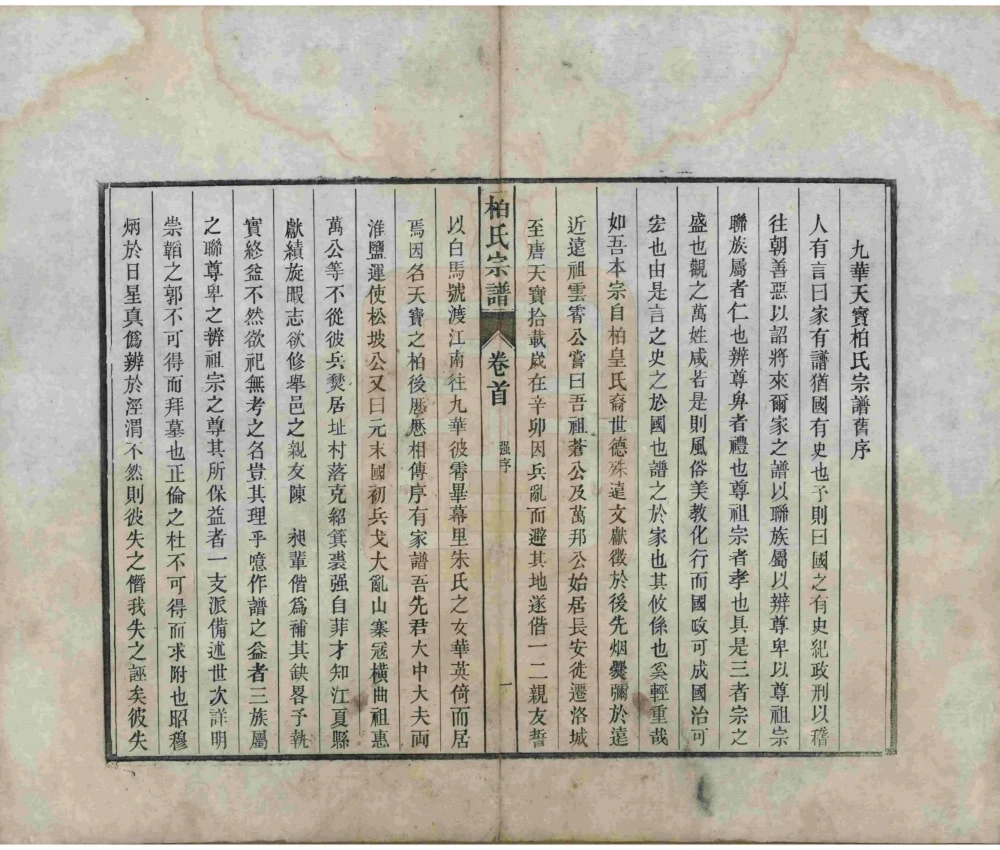 九華天寶柏氏宗譜舊序
人有言曰家有譜猶國有史也予則曰國之有史犯政刑以稽
往朝善惡以詔將來爾家之譜以聯族屬以辨尊卑以尊祖宗
聯族屬者仁也辨尊卑者禮也尊祖宗者孝也具是三者宗之
盛也觀之萬姓咸若是則風俗美教化行而國政可成國治可
宏也由是言之史之於國也譜之於家也其攸係也奚輕重哉
如吾本宗自柏皇氏裔世德殊遠文獻徵於後先烟爨彌於遠
近遠祖雲霄公嘗曰吾祖蒼公及萬邦公始居長安徙遷洛城
至唐天寶拾載歲在辛卯因兵亂而避其地遂偕一二親友誓
柏氏宗譜
卷首
强序
一
以白馬號渡江南往九華彼霄畢幕里朱氏之女華英倚而居
焉因名天寶之柏後歷歷相傳序有家譜吾先君大中大夫両
淮鹽運使松坡公又曰元末國初兵戈大亂山寨寇橫曲祖惠
萬公等不從彼兵燹居址村落克紹箕裘强自菲才知江夏縣
獻績旋暇志欲修舉邑之親友陳 昶輩偕爲補其缺畧予執
實終益不然欲祀無考之名豈其理乎噫作譜之益者三族屬
之聯尊卑之辨祖宗之尊其所保益者一支派備述世次詳明
崇韜之郭不可得而拜墓也正倫之杜不可得而求附也昭穆
炳於日星真僞辨於涇渭不然則彼失之僭我失之誣矣彼失